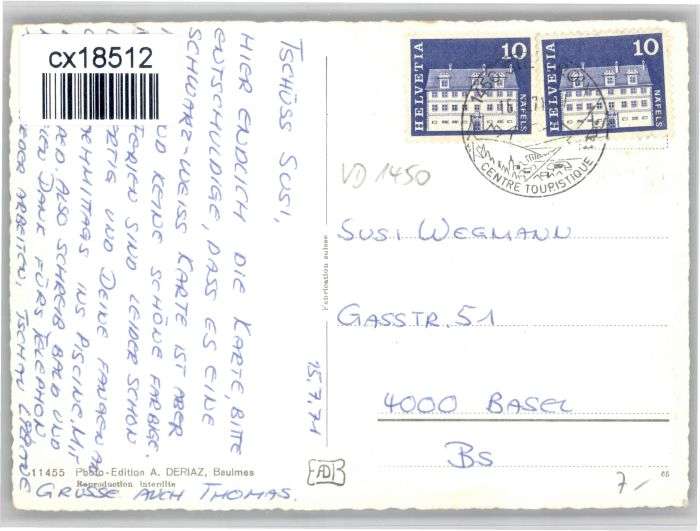 cx18512
TSCHÜSS SUSI,
HIER ENDLICH DIE KARTE, BITTE
ENTSCHULDIGE, DASS ES EINE
SCHWARZ-WEISS KARTE IST ABER
KEINE SCHÖNE FARBIGE.
FERIEN SIND LEIDER SCHON
UND DEINE FANGEN AN
INS PISCINE. MIT
ALSO SCHREIB BALD UND
DANK FÜRS TELEPHON
ODER ARBEITEN, TSCHAU
GRÜSSE AUCH THOMAS.
15.7.71
11455 Photo-Edition A. DERIAZ, Baulmes
Reproduction interdite
Fabrication suisse
AD
HELVETIA 10 NÄFELS
HELVETIA 10 NÄFELS
CENTRE TOURISTIQUE
VD 1450
SUSI WEGMANN
GASSTR. 51
4000 BASEL
BS
7.-